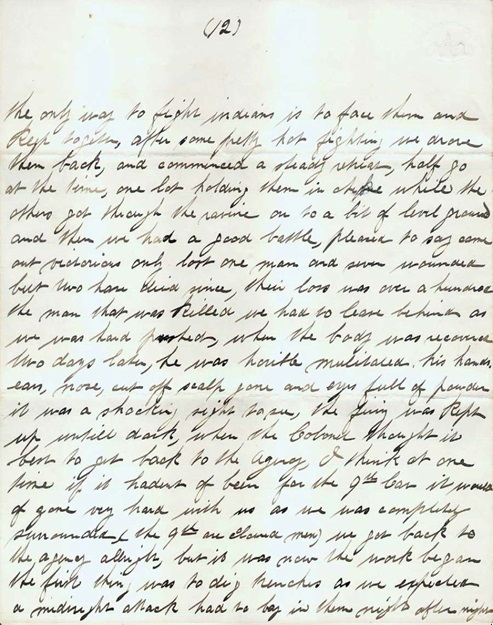 (12)
the only way to fight indians is to face them and
keep together, after some pretty hot fighting we drove
them back, and commenced a steady retreat, half go
at the time, one lot holding them in check while the
others got through the ravine on to a bit of level ground
and then we had a good battle, pleased to say came
out victorious only lost one man and seven wounded
but two have died since, their loss was over a hundred
the man that was killed we had to leave behind as
we was hard pushed, when the body was recovered
two days later, he was horible mutilated. his hands,
ears, nose, cut off scalp gone and eyes full of powder
it was a shocking sight to see, the firing was kept
up untill dark, when the Colonel thought it
best to get back to the Agency, I think at one
time if it hadent of been for the 9th Cav it would
of gone very hard with us as we was completely
surrounded, (the 9th are colored men) we got back to
the agency allright, but it was now the work began
the first thing was to dig trenches as we expected
a midnight attack had to lay in them night after night